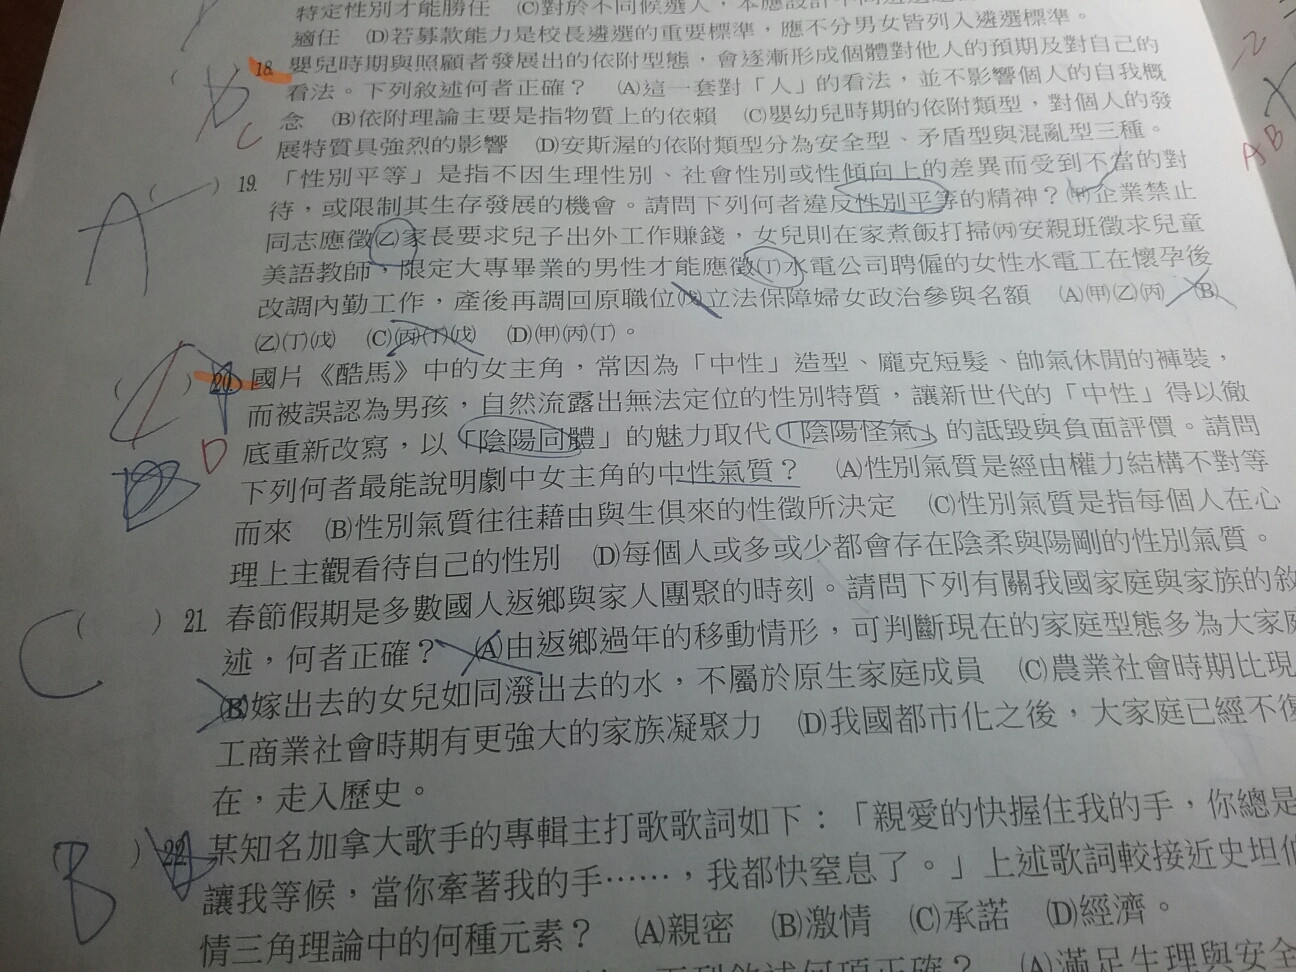 特定性別才能勝任　(C)對於不同候選人，本應設計不同遴選
適任　(D)若募款能力是校長遴選的重要標準，應不分男女皆列入遴選標準。
18. 嬰兒時期與照顧者發展出的依附型態，會逐漸形成個體對他人的預期及對自己的
看法。下列敘述何者正確？　(A)這一套對「人」的看法，並不影響個人的自我概
念　(B)依附理論主要是指物質上的依賴　(C)嬰幼兒時期的依附類型，對個人的發
C
展特質具強烈的影響　(D)安斯渥的依附類型分為安全型、矛盾型與混亂型三種。
AB
A ( ) 19. 「性別平等」是指不因生理性別、社會性別或性傾向上的差異而受到不當的對
待，或限制其生存發展的機會。請問下列何者違反性別平等的精神？(甲)企業禁止
同志應徵(乙)家長要求兒子出外工作賺錢，女兒則在家煮飯打掃(丙)安親班徵求兒童
美語教師，限定大專畢業的男性才能應徵(丁)水電公司聘僱的女性水電工在懷孕後
改調內勤工作，產後再調回原職位(戊)立法保障婦女政治參與名額　(A)(甲)(乙)(丙)　(B)
(乙)(丁)(戊)　(C)(丙)(丁)(戊)　(D)(甲)(丙)(丁)。
( ) 20. 國片《酷馬》中的女主角，常因為「中性」造型、龐克短髮、帥氣休閒的褲裝，
而被誤認為男孩，自然流露出無法定位的性別特質，讓新世代的「中性」得以徹
D 底重新改寫，以「陰陽同體」的魅力取代「陰陽怪氣」的詆毀與負面評價。請問
下列何者最能說明劇中女主角的中性氣質？　(A)性別氣質是經由權力結構不對等
而來　(B)性別氣質往往藉由與生俱來的性徵所決定　(C)性別氣質是指每個人在心
理上主觀看待自己的性別　(D)每個人或多或少都會存在陰柔與陽剛的性別氣質。
C ( ) 21. 春節假期是多數國人返鄉與家人團聚的時刻。請問下列有關我國家庭與家族的敘
述，何者正確？　(A)由返鄉過年的移動情形，可判斷現在的家庭型態多為大家庭
(B)嫁出去的女兒如同潑出去的水，不屬於原生家庭成員　(C)農業社會時期比現
工商業社會時期有更強大的家族凝聚力　(D)我國都市化之後，大家庭已經不復
在，走入歷史。
B ) 22. 某知名加拿大歌手的專輯主打歌歌詞如下：「親愛的快握住我的手，你總是
讓我等候，當你牽著我的手……，我都快窒息了。」上述歌詞較接近史坦伯
情三角理論中的何種元素？　(A)親密　(B)激情　(C)承諾　(D)經濟。
下列敘述何項正確？　(A)滿足生理與安全